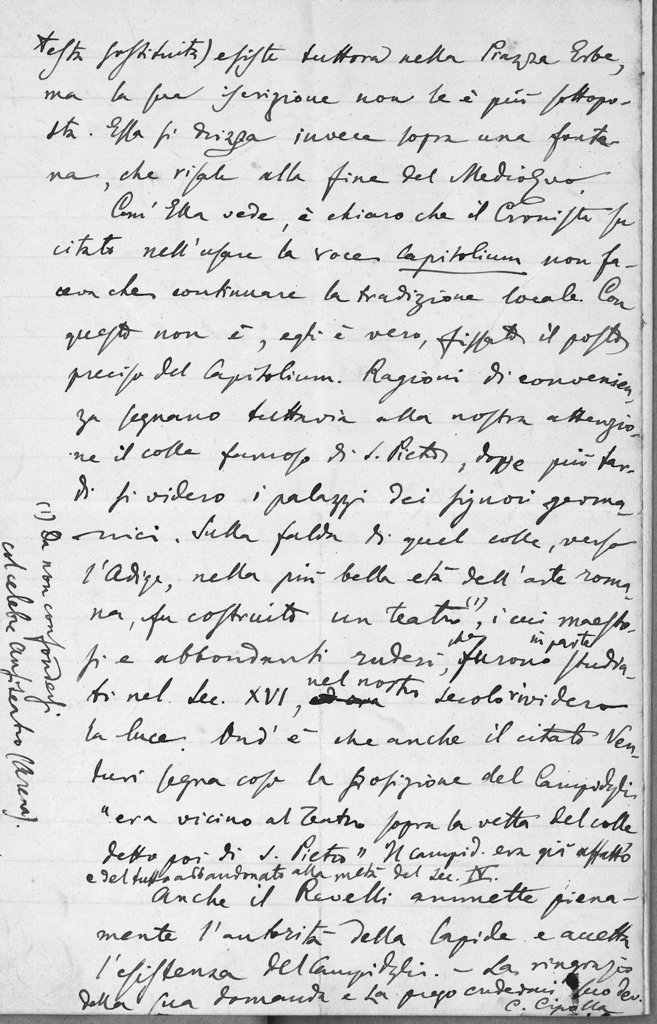 testa sostituita) esiste tuttora nella Piazza Erbe,
ma la sua iscrizione non le è più sottopo-
sta. Essa si drizza invece sopra una fonta-
na, che risale alla fine del MedioEvo.
Com' Ella vede, è chiaro che il Cronista su
citato nell'usare la voce Capitolium non fa-
ceva che continuare la tradizione locale. Con
questo non è, egli è vero, fissato il posto
preciso del Capitolium. Ragioni di convenien-
za segnano tuttavia alla nostra attenzio-
ne il colle famoso di S. Pietro, dove più tar-
di si videro i palazzi dei signori germa-
nici. Sulla falda di quel colle, verso
l'Adige, nella più bella età dell'arte roma-
na, fu costruito un teatro (1), i cui maesto-
si e abbondanti ruderi, che furono in parte studia-
ti nel Sec. XVI, nel nostro secolo rividero
la luce. Ond' è che anche il citato Ven-
turi segna così la posizione del Campidoglio
"era vicino al Teatro sopra la vetta del colle
detto poi di S. Pietro" Il Campid. era già affatto
e del tutto abbandonato alla metà del Sec. IV.
Anche il Revelli ammette piena-
mente l'autorità della Lapide e accetta
l'esistenza del Campidoglio. - La ringrazio
della sua domanda e La prego credermi Suo dev.
C. Cipolla
(1) Da non confondersi
col celebre Anfiteatro (Arena).